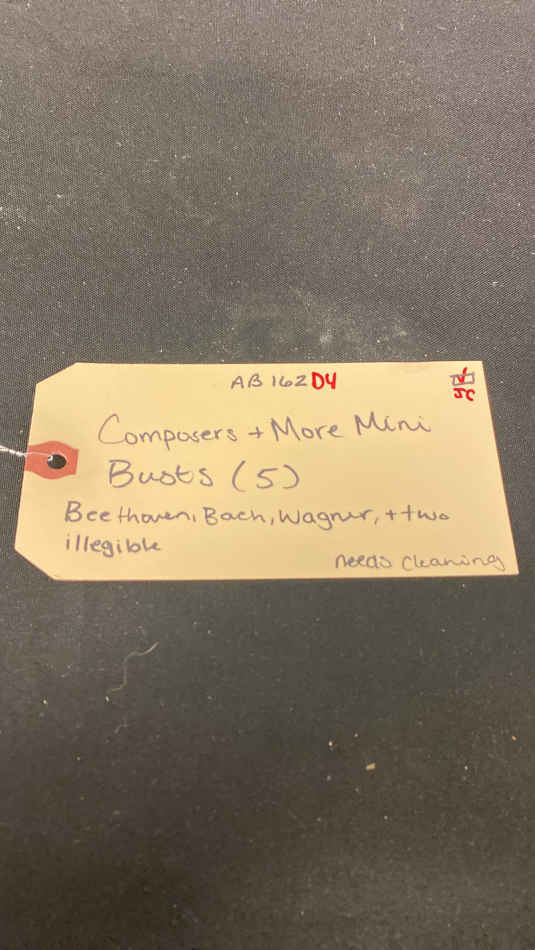 AB 162 D4
JC
Composers + More Mini
Busts (5)
Beethoven, Bach, Wagner, + two
illegible
needs cleaning